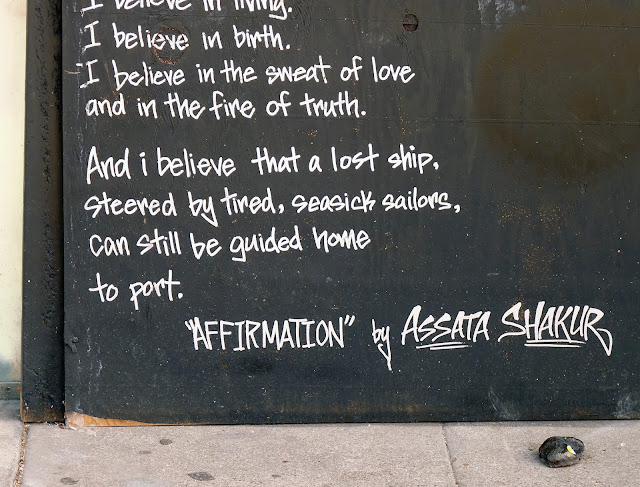 I believe in living.
I believe in birth.
I believe in the sweat of love
and in the fire of truth.
And i believe that a lost ship,
steered by tired, seasick sailors,
can still be guided home
to port.
"AFFIRMATION" by ASSATA SHAKUR